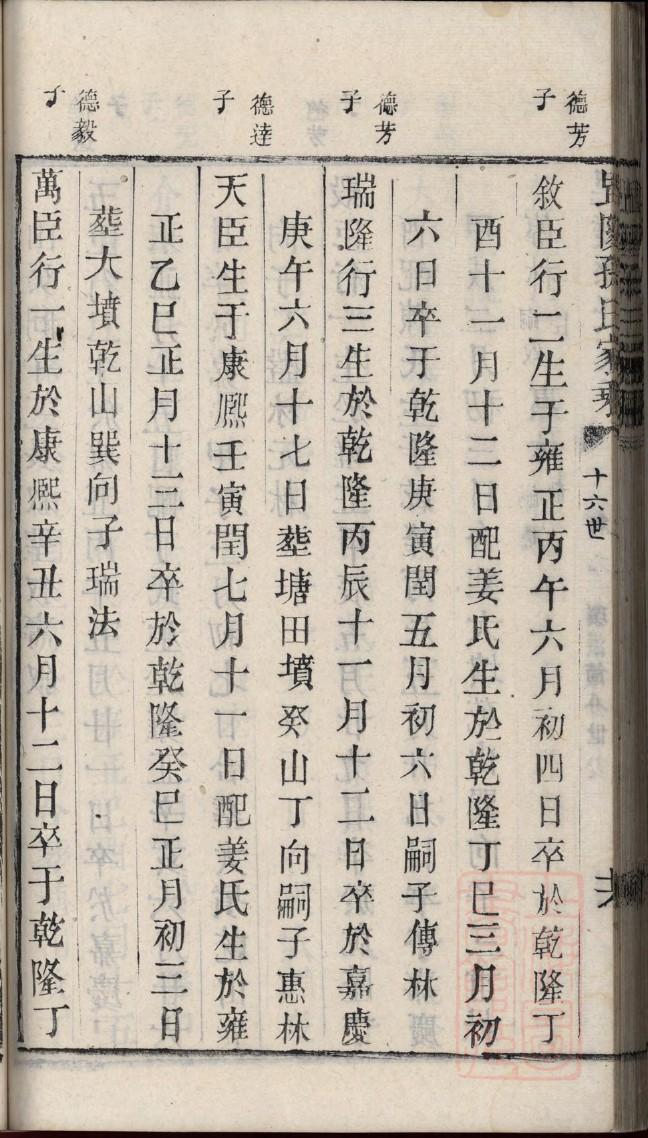 孫氏家乘
十六世
德芳
子
敘臣行二生于雍正丙午六月初四日卒於乾隆丁
酉十一月十二日配姜氏生於乾隆丁巳三月初
六日卒于乾隆庚寅閏五月初六日嗣子傳林
德芳
子
瑞隆行三生於乾隆丙辰十一月十二日卒於嘉慶
庚午六月十七日塟塘田墳癸山丁向嗣子惠林
德逹
子
天臣生于康熈壬寅閏七月十一日配姜氏生於雍
正乙巳正月十三日卒於乾隆癸巳正月初三日
塟大墳乾山巽向子瑞法
德毅
子
萬臣行一生於康熈辛丑六月十二日卒于乾隆丁